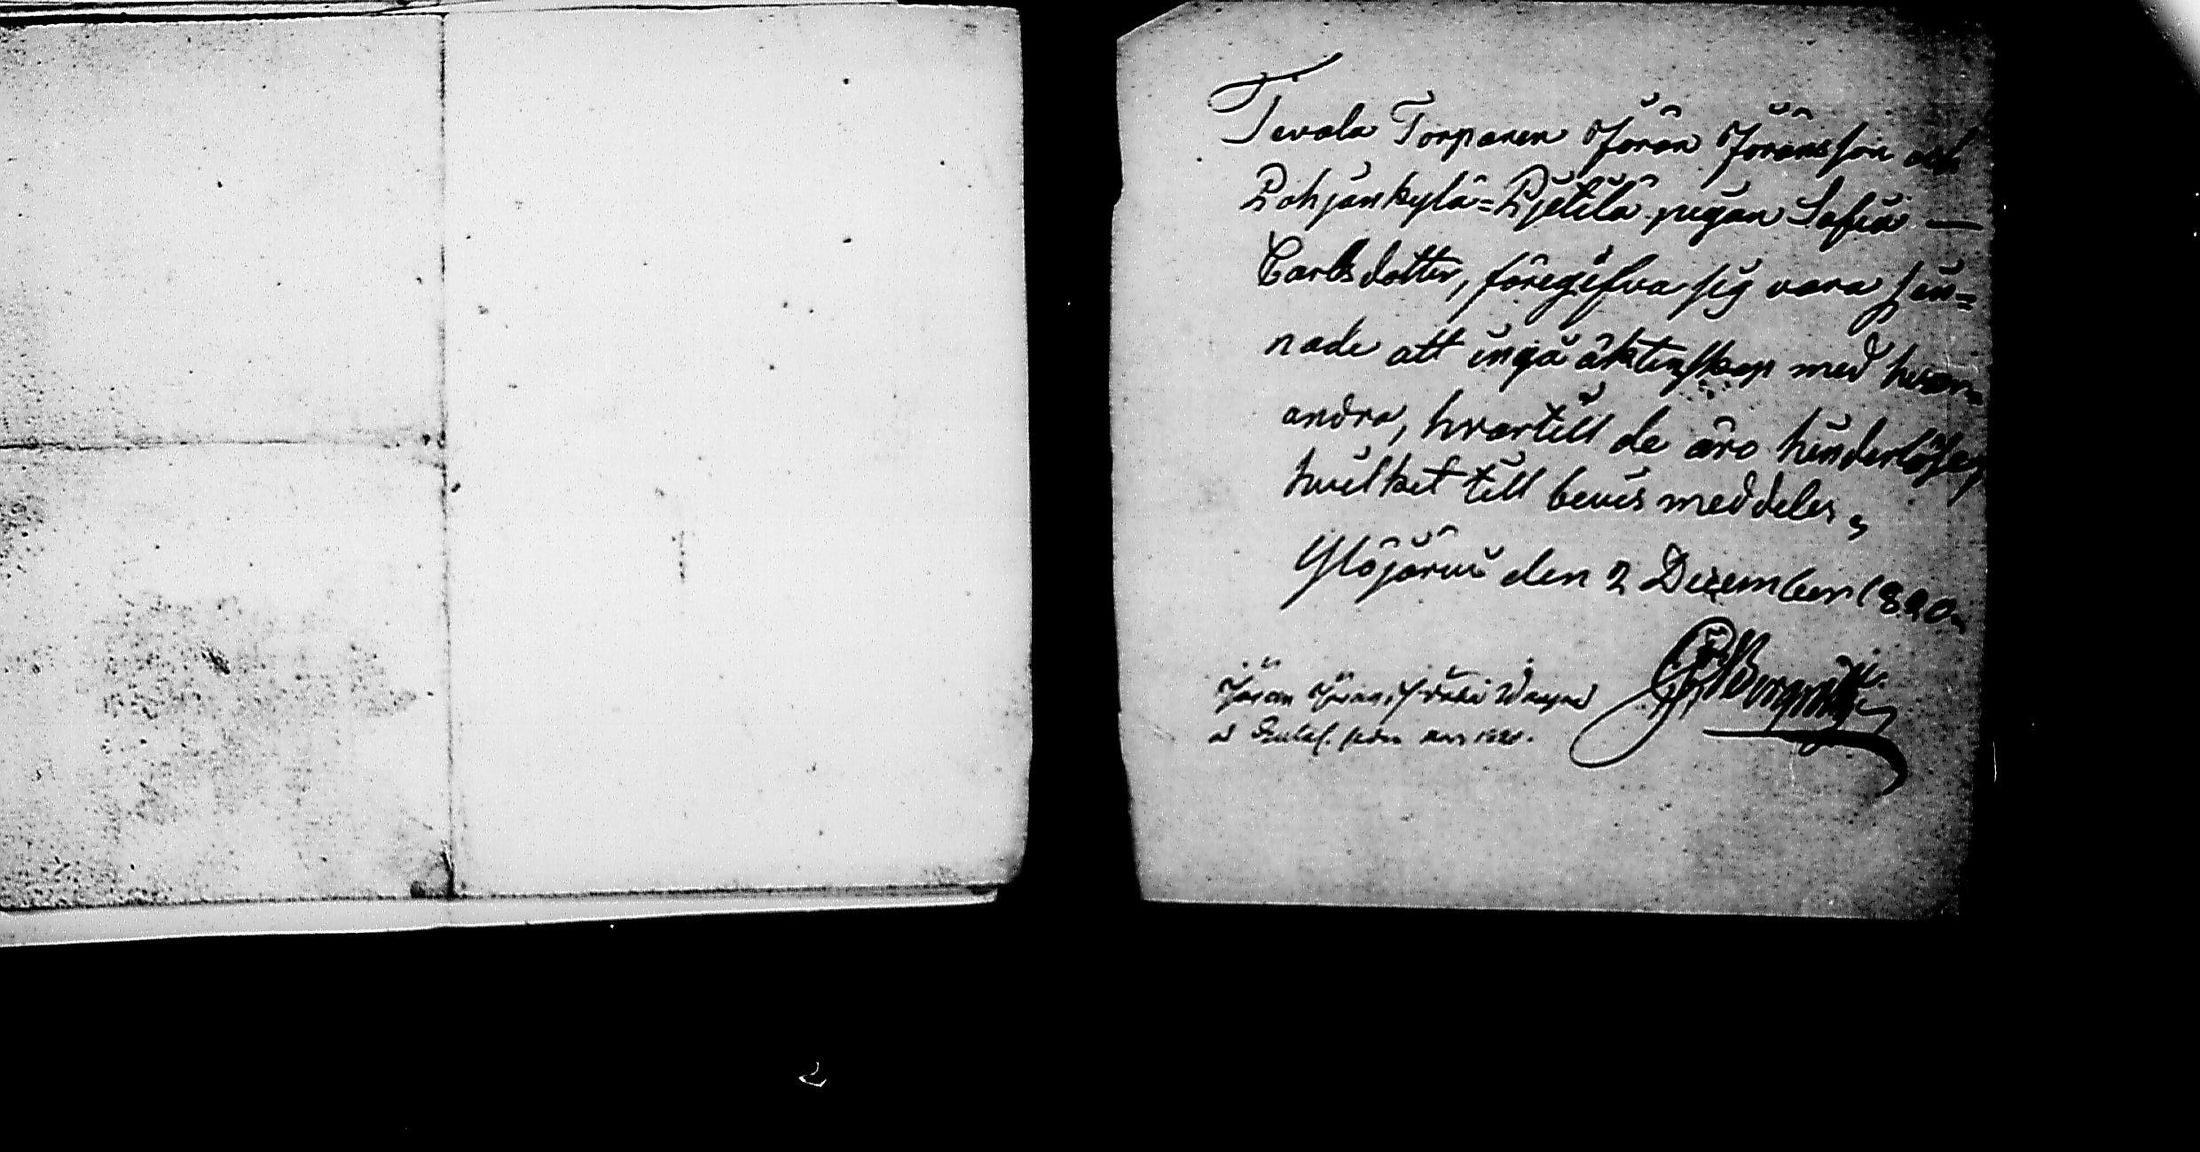 Tevala Torparen Jöran Jöransson och
Pohjankylä=Pjetilä pigan Sofia —
Carlsdotter, föregifva sig vara sin=
nade att ingå äktenskap med hvar=
andra, hvartill de äro hinderlöse,
hvilket till bevis meddeles,
Ylöjärvi den 2 December 18
Jöran